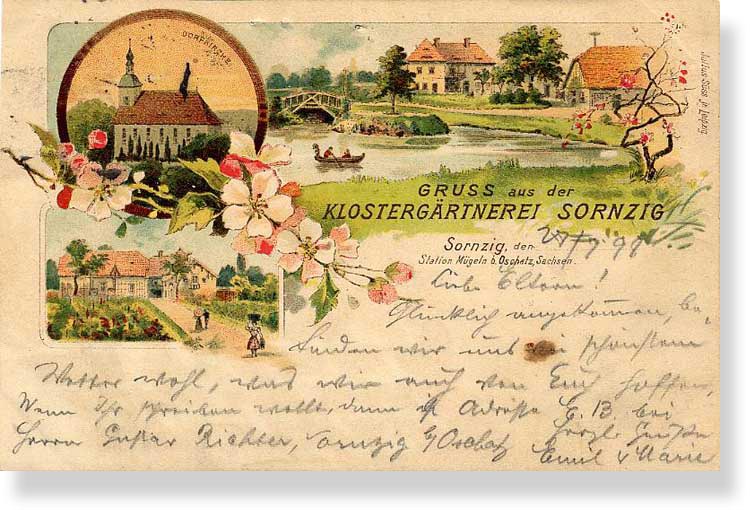 DORFKIRCHE
Julius Süss jr. Leipzig
GRUSS aus der
KLOSTERGÄRTNEREI SORNZIG
Sornzig, den
Station Mügeln b. Oschatz, Sachsen.
Liebe Eltern!
Glücklich angekommen, be-
finden wir uns bei schönstem
Wetter wohl, was wir auch von Euch hoffen,
Wenn Ihr schreiben wollt, dann ist Adresse E. B. bei
Herrn Gustav Richter, Sornzig b/Oschatz
Herzl. Grüße
Emil & Marie